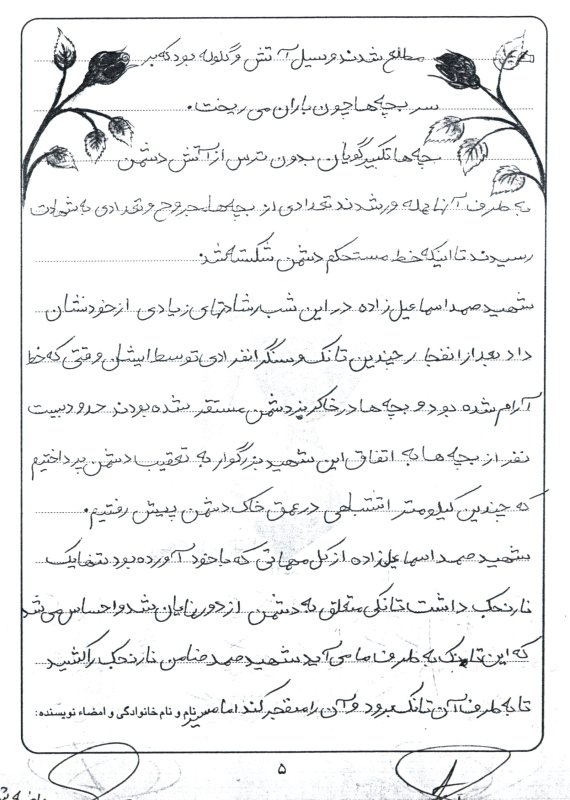 مطلع شدند و سیل آتش و گلوله بود که بر
سر بچه‌ها چون باران می ریخت.
بچه‌ها تکبیرگویان بدون ترس از آتش دشمن
به طرف آنها حمله ور شدند تعدادی از بچه‌ها مجروح و تعدادی به شهادت
رسیدند تا اینکه خط مستحکم دشمن شکسته شد.
شهید صمد اسماعیل زاده در این شب رشادتهای زیادی از خود نشان
داد بعد از انفجار چندین تانک و سنگر انفرادی توسط ایشان وقتی که خط
آرام شده بود و بچه ها در خاکریز دشمن مستقر شده بودند حدود بیست
نفر از بچه ها به اتفاق این شهید بزرگوار به تعقیب دشمن پرداختیم
که چندین کیلومتر در عمق خاک دشمن پیش رفتیم.
شهید صمد اسماعیل زاده از کل مهماتی که با خود آورده بود تنها یک
نارنجک داشت تانکی متعلق به دشمن از دور نمایان شد و احساس می شد
که این تانک به طرف ما می آید شهید صمد ضامن نارنجک را کشید
تا به طرف آن تانک برود و آن را منفجر کند اما مسیر
نام و نام خانوادگی و امضاء نویسنده:
۵